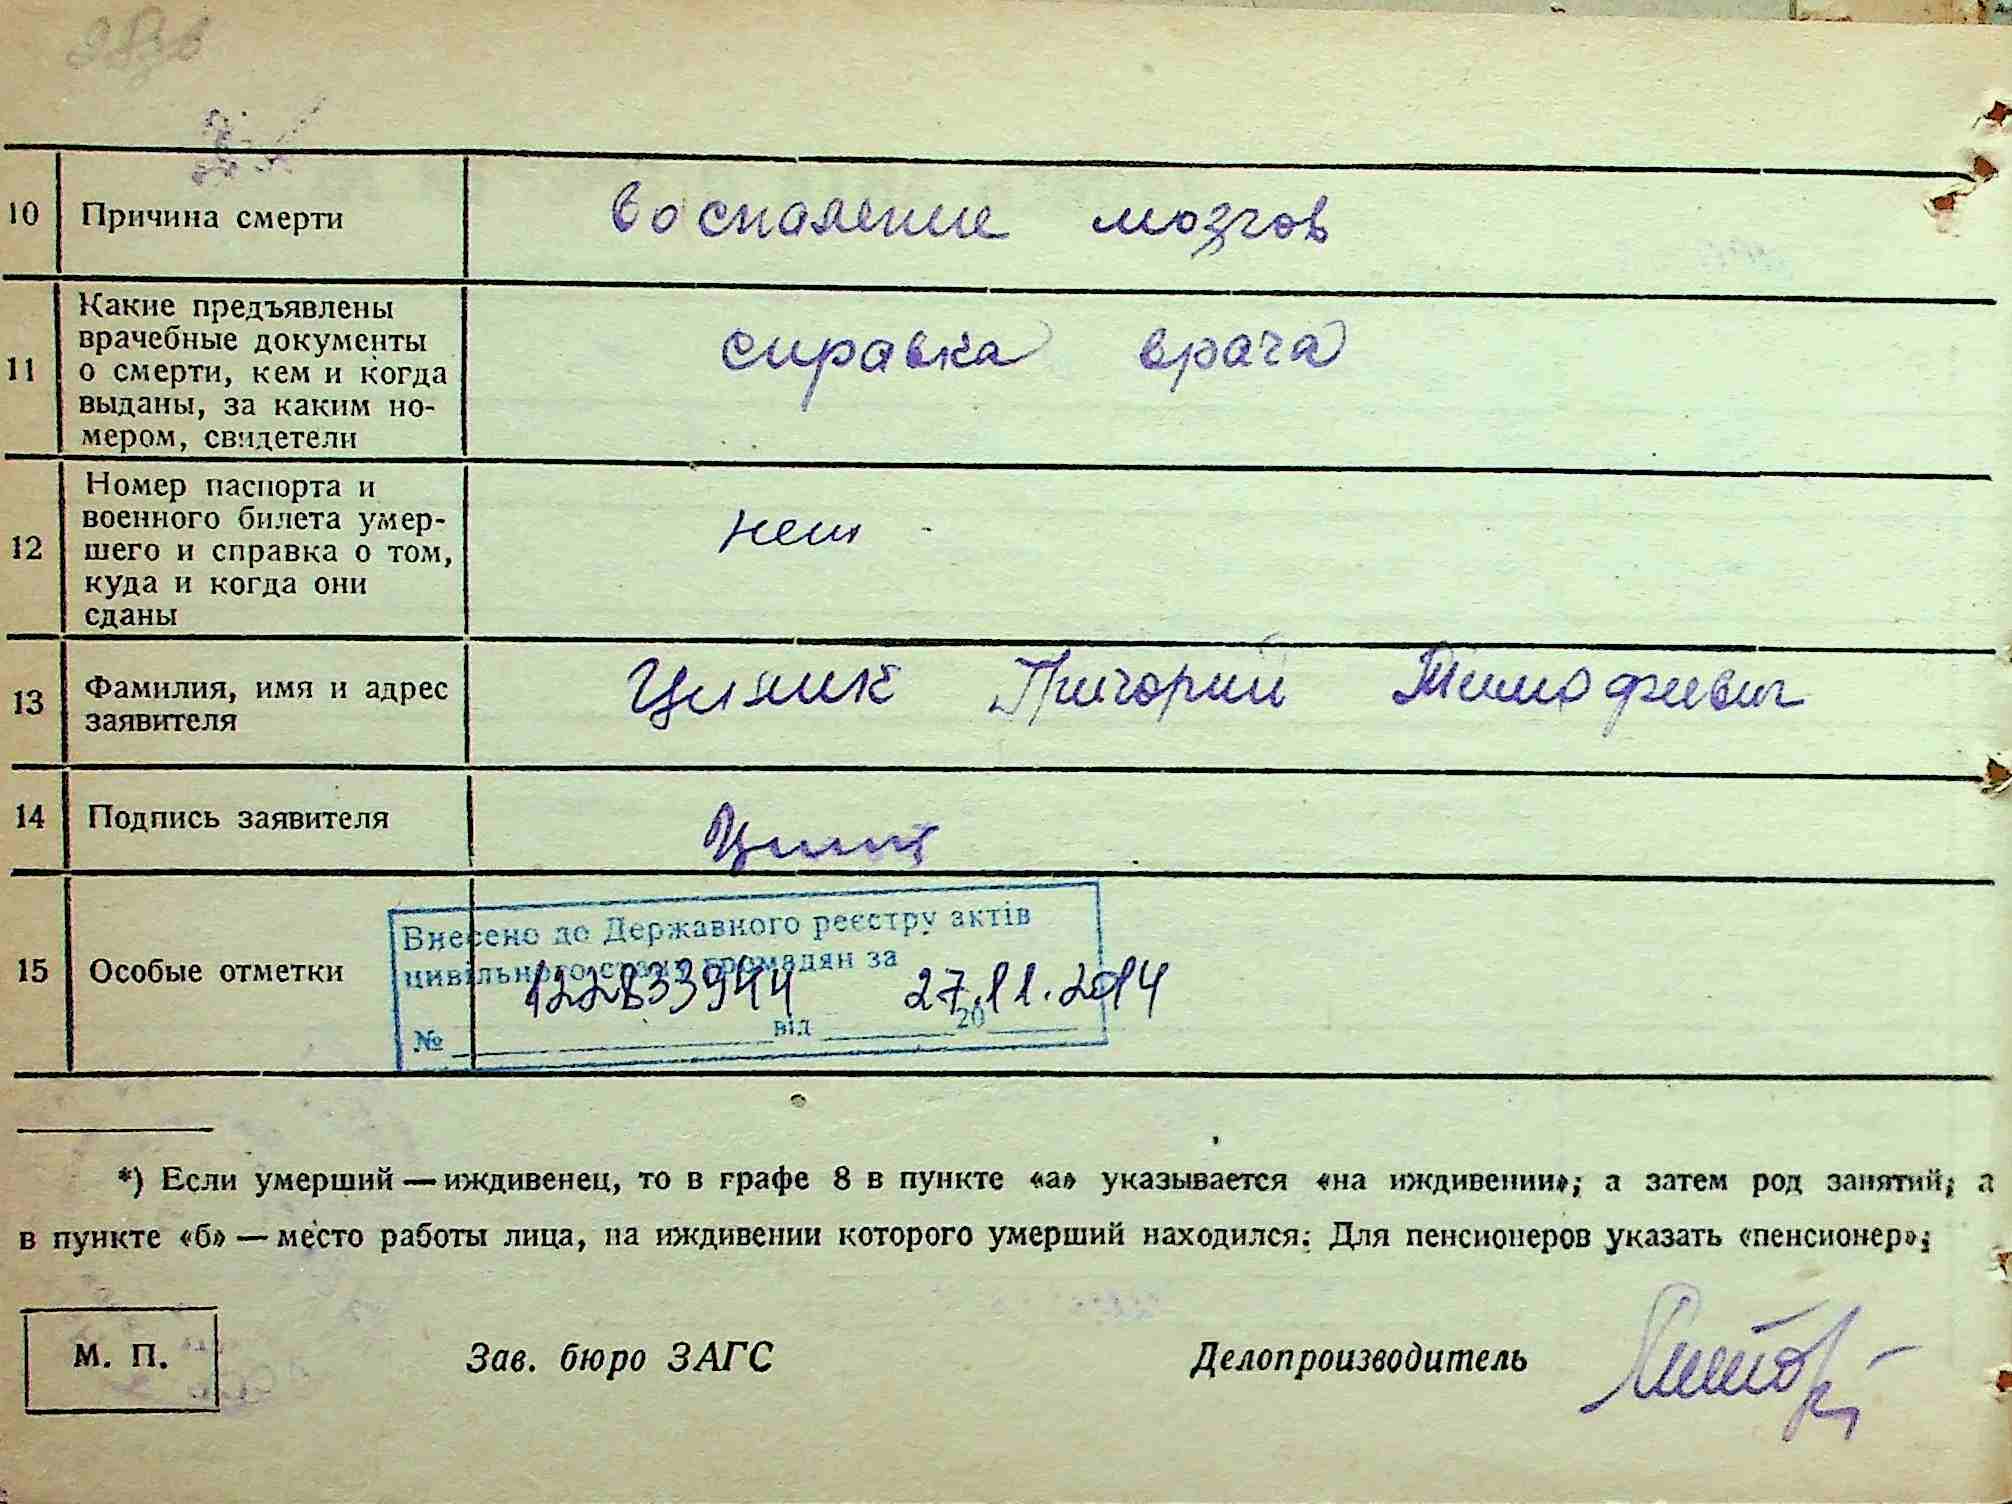 10 Причина смерти воспаление мозгов
11 Какие предъявлены
врачебные документы
о смерти, кем и когда
выданы, за каким но-
мером, свидетели
справка врача
12 Номер паспорта и
военного билета умер-
шего и справка о том,
куда и когда они
сданы
нет
13 Фамилия, имя и адрес
заявителя
Григорий Тимофиевич
14 Подпись заявителя
15 Особые отметки
Внесено до Державного реєстру актів
цивільного стану громадян за
122833944 27.11.2014
№ від 20
*) Если умерший — иждивенец, то в графе 8 в пункте «а» указывается «на иждивении»; а затем род занятий; а
в пункте «б» — место работы лица, на иждивении которого умерший находился. Для пенсионеров указать «пенсионер»;
М. П. Зав. бюро ЗАГС Делопроизводитель